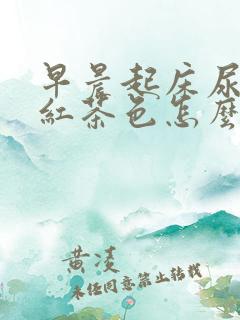 早晨起床尿
紅茶色怎麼
黄凌
未经同意禁止转载